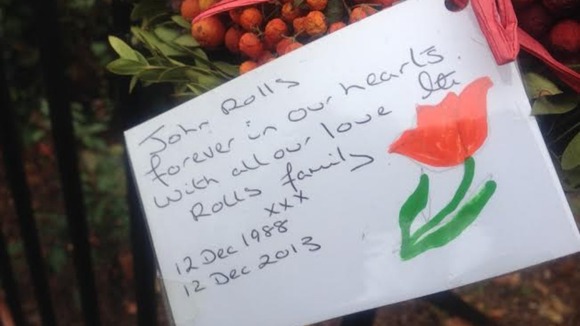 John Rolls
forever in our hearts.
With all our love
Rolls family
xxx
12 Dec 1988
12 Dec 2013